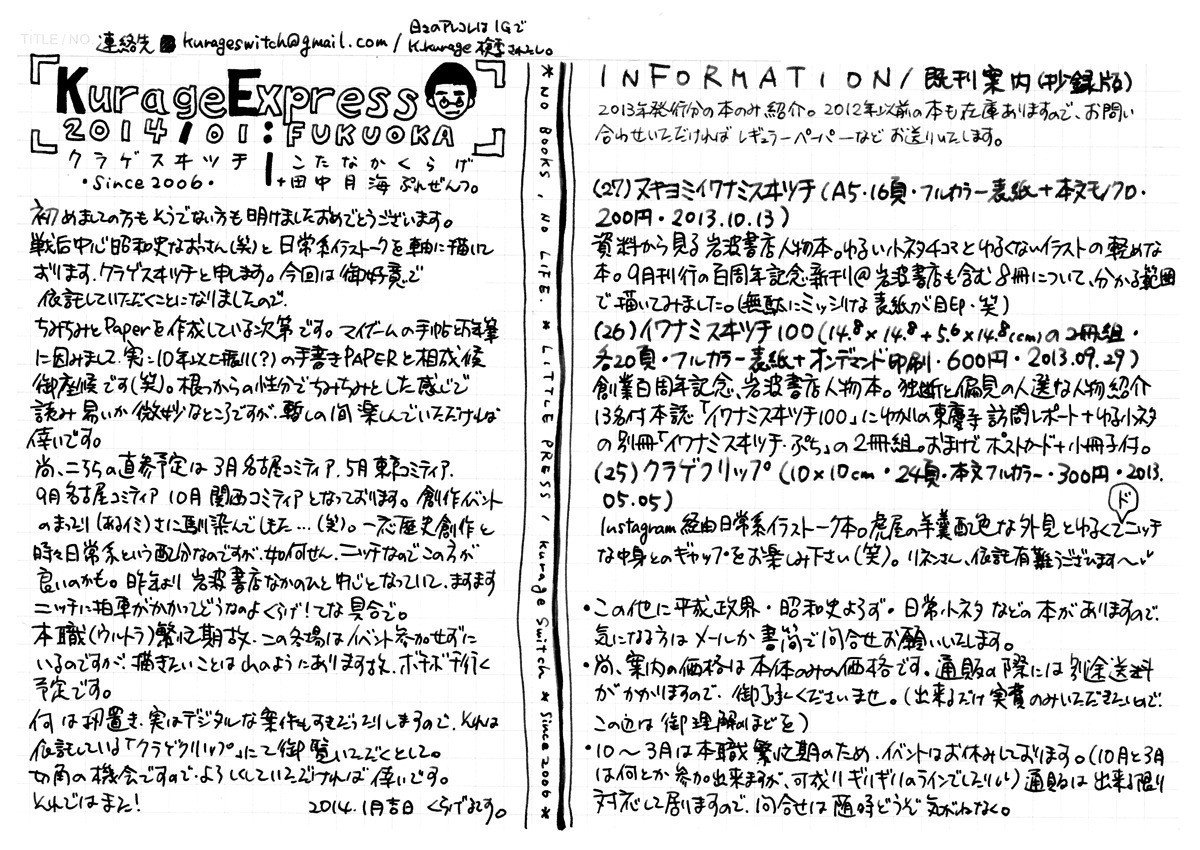 TITLE/NO
連絡先 kurageswitch@gmail.com /
日々のアレコレはIGで
K.kurage 検索されたし。
KurageExpress
2014/01:FUKUOKA
クラゲスヰッチ
・Since2006・
こたなかくらげ
+田中月海ぷれぜんつ。
初めましての方もそうでない方も明けましておめでとうございます。
戦后中心昭和史なおっさん(笑)と日常系イラストークを軸に描いて
おります、クラゲスヰッチと申します。今回は御好意で
依託していただくことになりましたので、
ちみちみとPaperを作成している次第です。マイブームの手帖と万年筆
に因みまして、実に10年以上振り(?)の手書きPAPERと相成候
御座候です(笑)。根っからの性分でちみちみとした感じで
読み易いか微妙なところですが、暫しの間楽しんでいただければ
倖いです。
尚、こちらの直参予定は3月名古屋コミティア、5月東京コミティア、
9月名古屋コミティア 10月関西コミティアとなっております。創作イベント
のまったり(あるイミ)さに馴染んでしまた…(笑)。一応歴史創作と
時々日常系という配分なのですが、如何せん、ニッチなのでこの方が
良いのかも。昨年より岩波書店なかのひと中心となっていて、ますます
ニッチに拍車がかかってどうなのよくらげ!てな具合で。
本職(ウルトラ)繁忙期故、この冬場はイベント参加せずに
いるのですが、描きたいことは山のようにあります故、ボチボチ行く
予定です。
何は扨置き、実はデジタルな案件もすきだったりしますので、それは
依託している「クラゲクリップ」にて御覧いただくとして。
切角の機会ですので、よろしくしていただければ倖いです。
それではまた!
2014.1月吉日 くらげです。
*NO BOOKS, NO LIFE. * LITTLE PRESS / Kurage Switch * Since 2006 *
INFORMATION/既刊案内(抄録版)
2013年発行分の本のみ紹介。2012年以前の本も在庫ありますので、お問い
合わせいただければレギュラーペーパーなどお送りいたします。
(27)ヌキヨミイワナミスヰッチ(A5・16頁・フルカラー表紙+本文モノクロ・
200円・2013.10.13)
資料から見る岩波書店人物本。ゆるい小ネタ4コマとゆるくないイラストの軽めな
本。9月刊行の百周年記念新刊@岩波書店も含む8冊について、分かる範囲
で描いてみました。(無駄にミッシリな表紙が目印・笑)
(26)イワナミスヰッチ100(14.8×14.8+5.6×14.8(cm)の2冊組・
各20頁・フルカラー表紙+オンデマンド印刷・600円・2013.09.29)
創業百周年記念、岩波書店人物本。独断と偏見の人選な人物紹介
13名付本誌「イワナミスヰッチ100」にゆかりの東慶寺訪問レポート+ゆる小ネタ
の別冊「イワナミスヰッチ・ぷち」の2冊組。おまけでポストカード+小冊子付。
(25)クラゲクリップ(10×10cm・24頁・本文フルカラー・300円・2013.
05.05)
ド
Instagram経由日常系イラストーク本。虎屋の羊羹配色な外見とゆるくてニッチ
な中身とのギャップをお楽しみ下さい(笑)。リネンさん、依託有難うございます〜♥
・この他に平成政界・昭和史よろず・日常小ネタなどの本がありますので、
気になる方はメールか書簡で問合せお願いいたします。
・尚、案内の価格は本体のみの価格です。通販の際には別途送料
がかかりますので、御了承くださいませ。(出来るだけ実費のみいただきたいので、
この辺は御理解のほどを)
・10〜3月は本職繁忙期のため、イベントはお休みしております。(10月と3月
は何とか参加出来ますが、可成りギリギリのラインでしたりし)通販は出来る限り
対応して居りますので、問合せは随時どうぞ気がねなく。